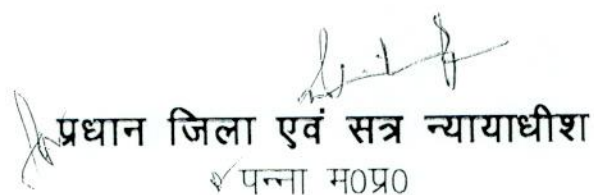 प्रधान जिला एवं सत्र न्यायाधीश
पन्ना म0प्र0